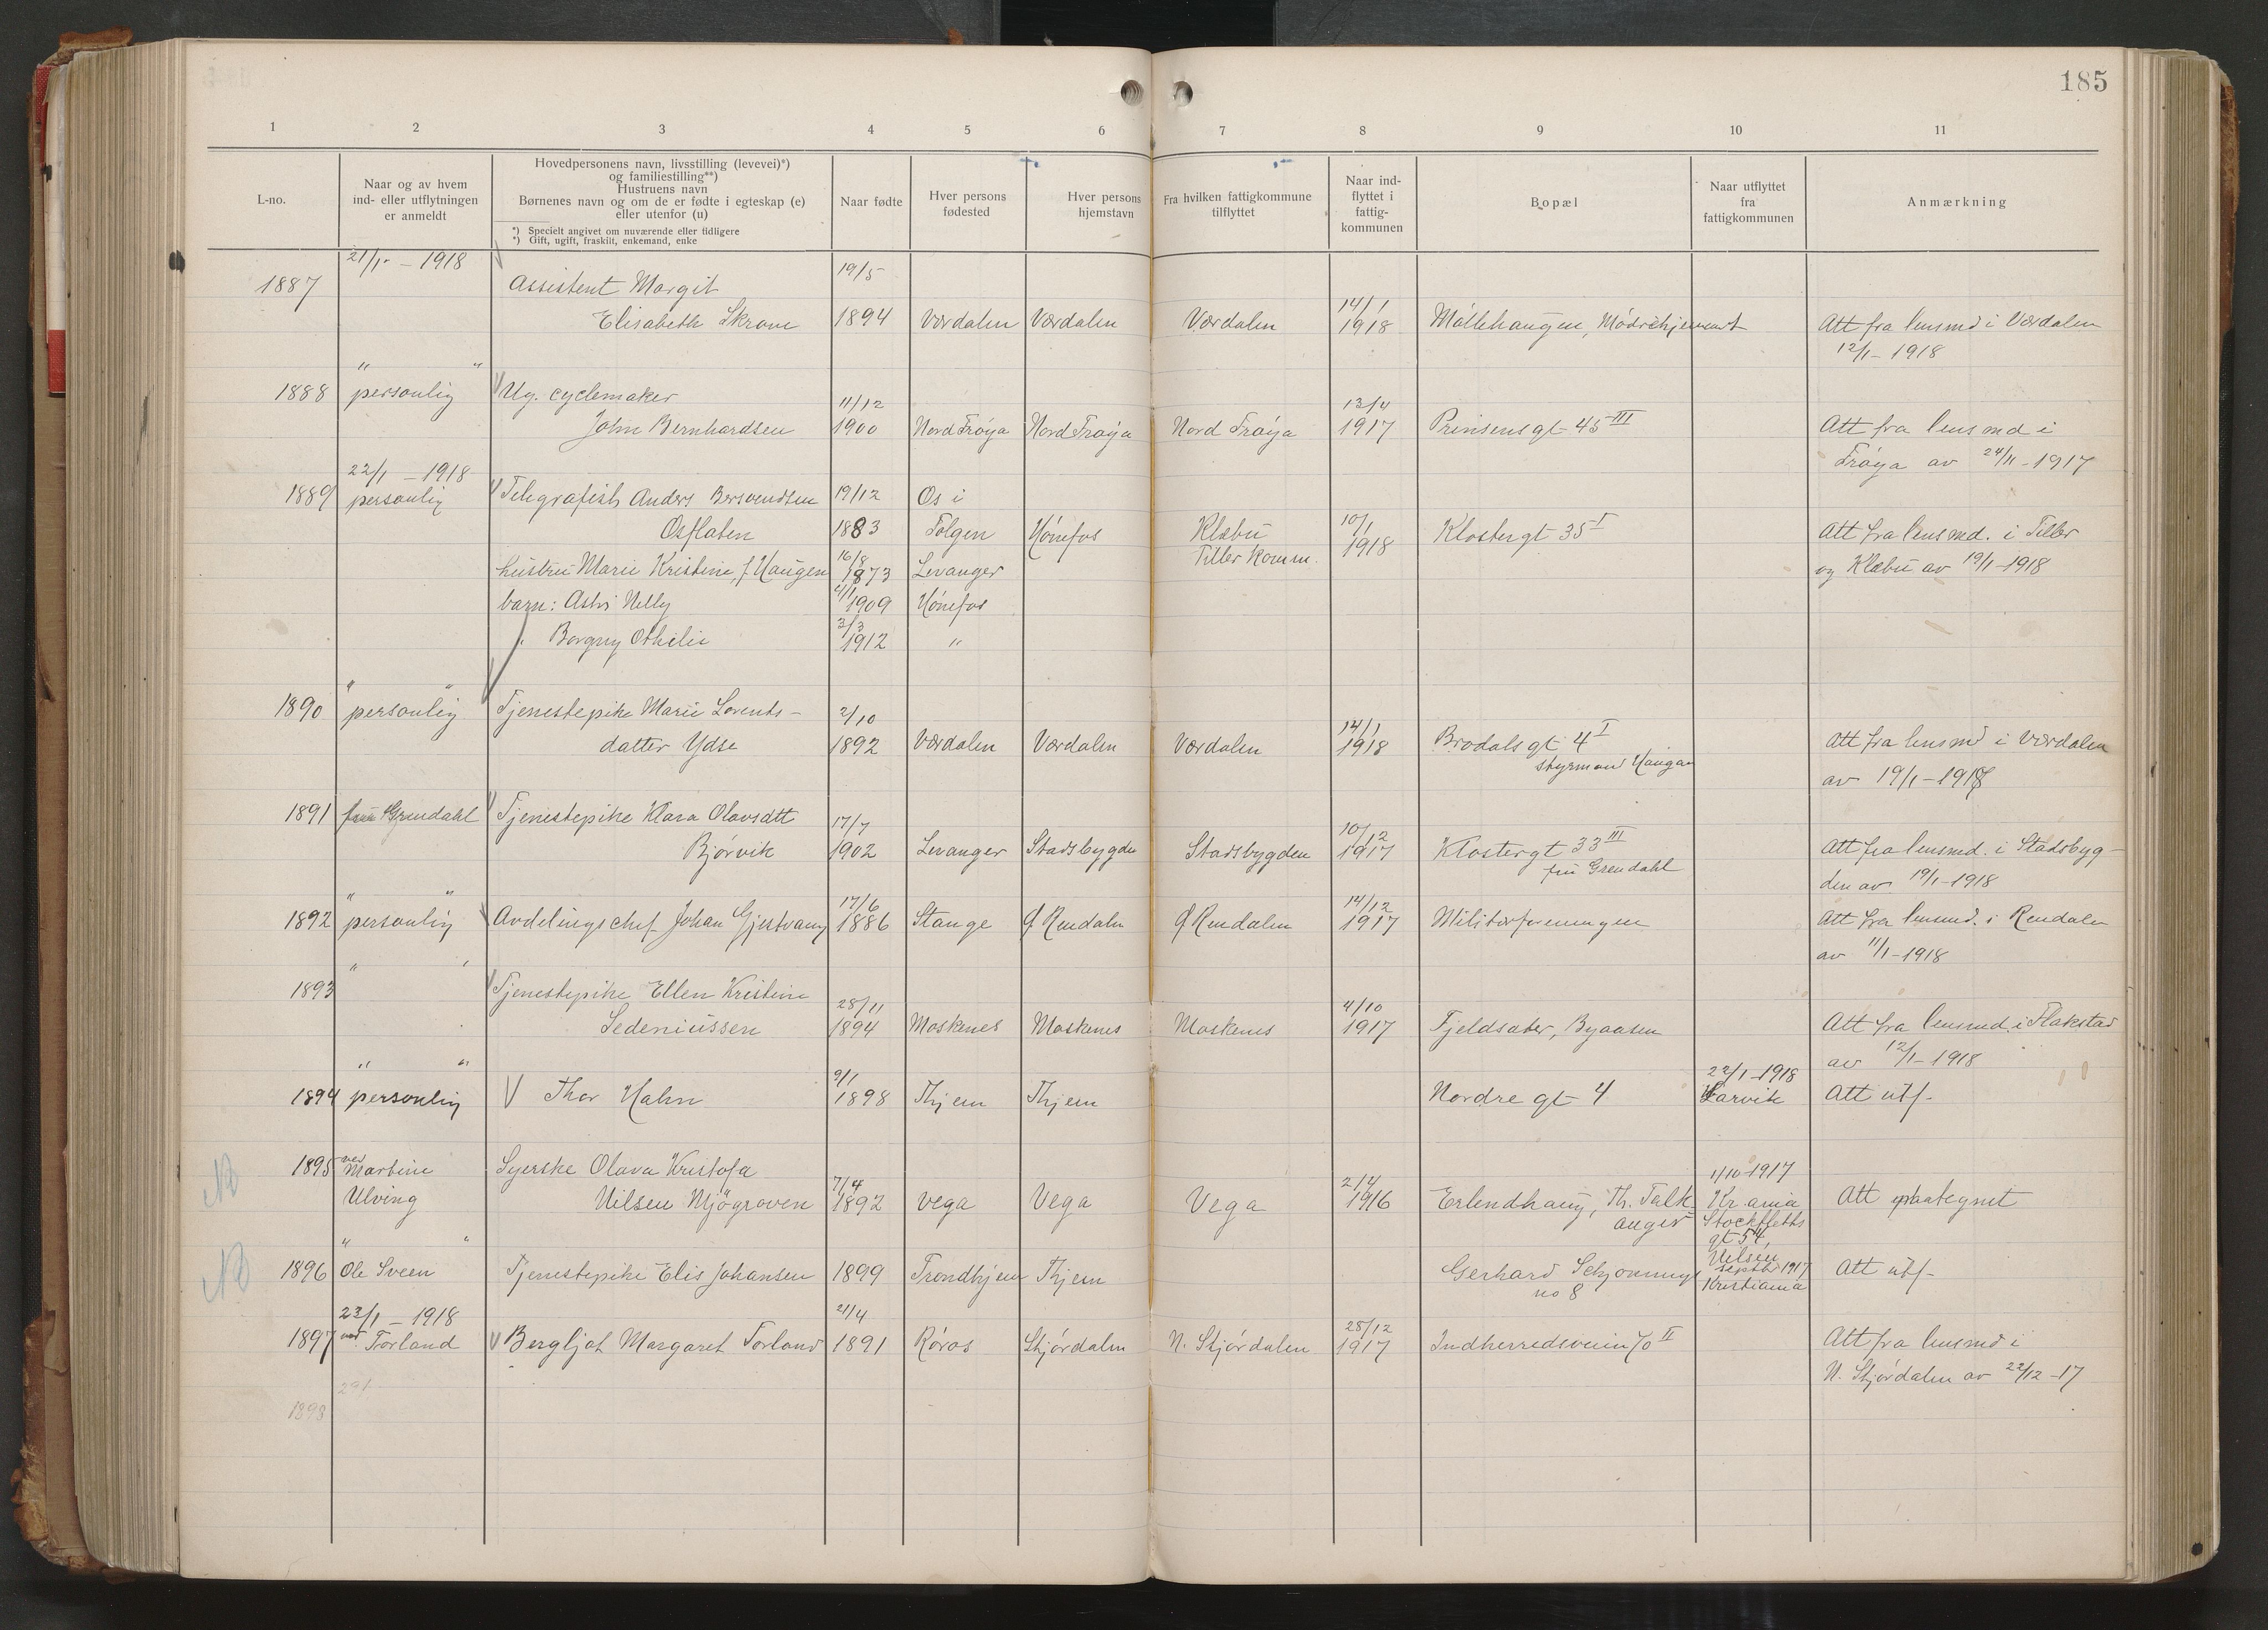 185
1 2 3 4 5 6 7 8 9 10 11
L-no.
Naar og av hvem
ind- eller utflytningen
er anmeldt
Hovedpersonens navn, livsstilling (levevei)*)
og familiestilling**)
Hustruens navn
Børnenes navn og om de er fødte i egteskap (e)
eller utenfor (u)
*) Specielt angivet om nuværende eller tidligere
*) Gift, ugift, fraskilt, enkemand, enke
Naar fødte
Hver persons
fødested
Hver persons
hjemstavn
Fra hvilken fattigkommune
tilflyttet
Naar ind-
flyttet i
fattig-
kommunen
Bopæl
Naar utflyttet
fra
fattigkommunen
Anmærkning
21/1 - 1918 19/5
1887 Assistent Margit 14/1
Elisabeth Skrove 1894 Værdalen Værdalen Værdalen 1918 Møllehaugen, Att fra lensmd i Værdalen
12/1 - 1918
" "
1888 personlig Ug. cyclemaker 11/12 13/4
John Bernhardsen 1900 Nord Frøya Nord Frøya Nord Frøya 1917 Prinsensgt 45 III Att fra lensmd i
Frøya av 24/11 - 1917
22/1 - 1918
1889 personlig Telegrafist Anders Bersvendsen 19/12 Os i
Osflaten 1883 Tolgen Hønefos Klæbu 10/1 1918 Klostergt 35 I Att fra lensmd. i Tiller
hustru Marie Kristine, f. Haugen 16/8 1873 Levanger Tiller Komm. og Klæbu av 19/1 - 1918
barn: Nelly 1909 Hønefos
" Borgny Othelie 3/3 1912 "
" "
1890 personlig Tjenestepike Marie Lorents- 2/10 14/1
datter Ydse 1892 Værdalen Værdalen Værdalen 1918 Brodalsgt 4 I Att fra lensmd i Værdalen
styrmand Haugan av 19/1 - 1918
1891 fru Grendahl Tjenestepike Klara Olavsdtt 17/7 10/12
Bjørvik 1902 Levanger Stadsbygden Stadsbygden 1917 Klostergt 33 III Att fra lensmd. i Stadsbyg-
fru Grendahl den av 19/1 - 1918
" " 17/6 14/12
1892 personlig Avdelingschef Johan Gjestvang 1886 Stange Ø Rendalen Ø Rendalen 1917 Militærforeningen Att fra lensmd. i Rendalen
av 11/1 - 1918
" "
1893 Tjenestepike Ellen Kristine 28/11 4/10
Sedeniussen 1894 Moskenes Moskenes Moskenes 1917 Fjeldsæter, Byaasen Att fra lensmd. i Flakstad
av 12/1 - 1918
" " 9/1 22/1 - 1918
1894 personlig Thor Hahn 1898 Thjem Thjem Nordre gt 4 Larvik Att utf.
NB 1895 ved Martine Syerske Olava Kristofa 7/4 2/4 1/10 - 1917
Ulving Nilsen Mjøgraven 1892 Vega Vega Vega 1916 Erlendhaug, Th. Falk- Kr.ania Att paategnet
anger Stockfleths
gt 54,
Nilsen
" "
NB 1896 Ole Sveen Tjenestepike Elis Johansen 1899 Trondhjem Thjem Gerhard Schjønnings septbr 1917 Att utf.
no 8 Kristiania
23/1 - 1918 21/4 28/12
1897 ved Torland Bergljot Margaret Torland 1891 Røros Stjørdalen N. Stjørdalen 1917 Indherredsveien 70 II Att fra lensmd i
N. Stjørdalen av 22/12 - 17
1898